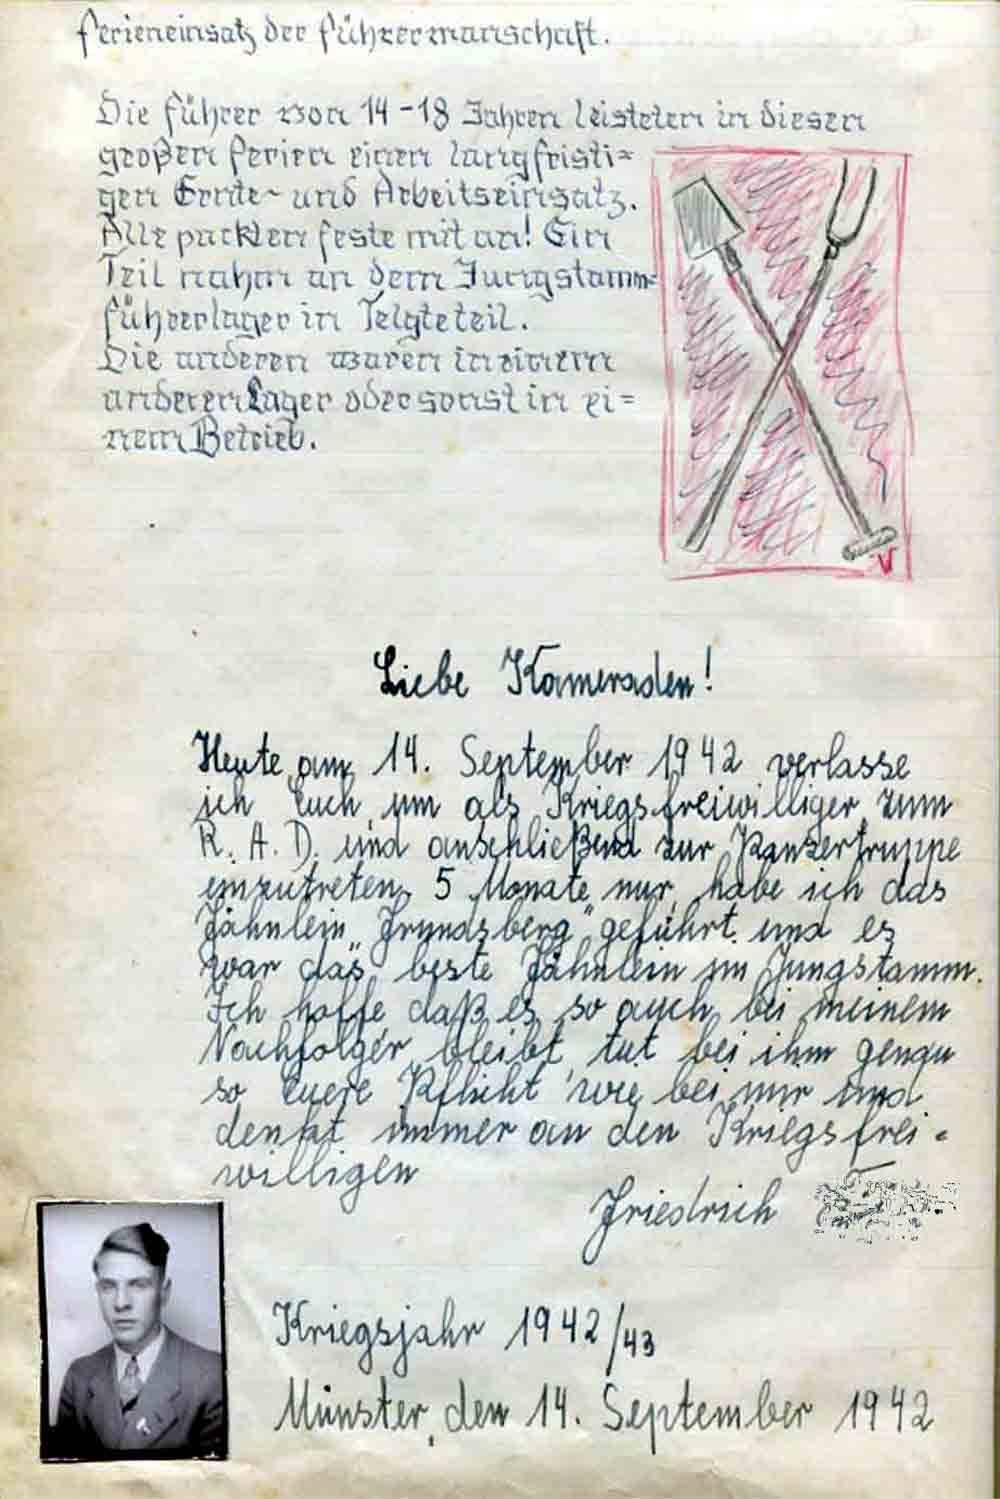 Ferieneinsatz der Führermannschaft.
Die Führer von 14-18 Jahren leisteten in diesen
großen Ferien einen langfristi=
gen Ernte- und Arbeitseinsatz.
Alle packten feste mit an! Ein
Teil nahm an dem Jungstamm=
führerlager in Telgte teil.
Die anderen waren in einem
anderen Lager oder sonst in ei=
nem Betrieb.
V
Liebe Kameraden!
Heute am 14. September 1942 verlasse
ich Euch, um als Kriegsfreiwilliger zum
R. A. D. und anschließend zur Panzertruppe
einzutreten. 5 Monate nur, habe ich das
Fähnlein „Frundsberg" geführt und es
war das beste Fähnlein im Jungstamm.
Ich hoffe, daß es so auch bei meinem
Nachfolger bleibt, tut bei ihm genau
so Euere Pflicht wie bei mir und
denkt immer an den Kriegsfrei=
willigen
Friedrich
Kriegsjahr 1942/43
Münster, den 14. September 1942